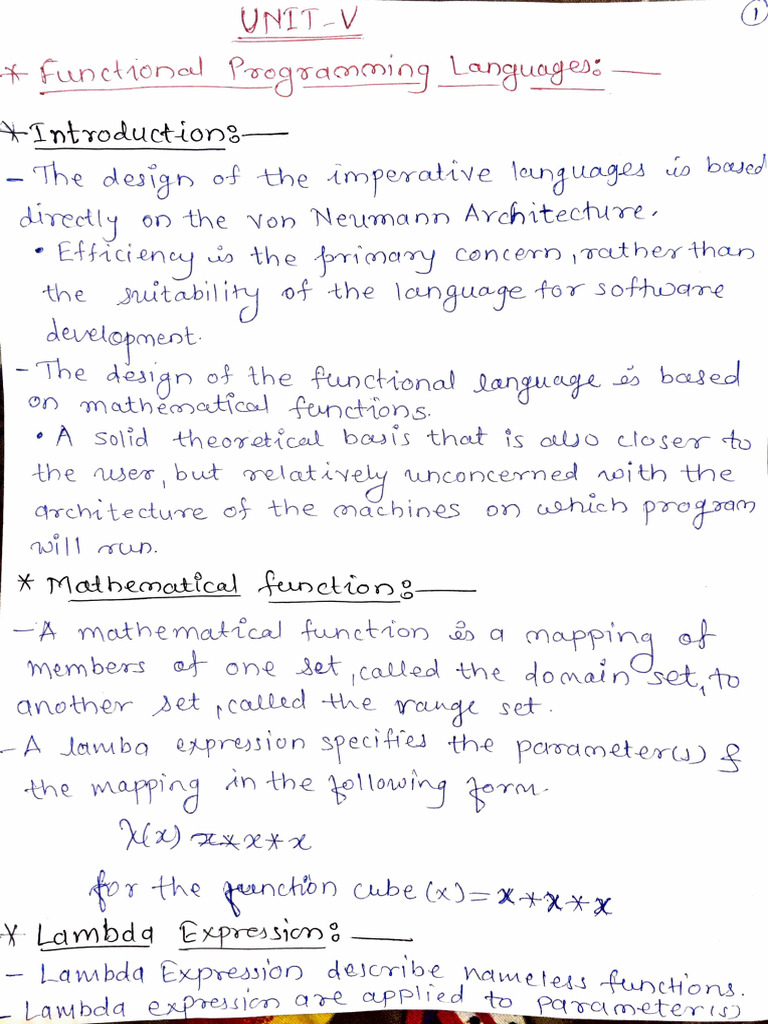 UNIT-V
1
* Functional Programming Languages:—
* Introduction:—
- The design of the imperative languages is based
directly on the von Neumann Architecture.
• Efficiency is the primary concern, rather than
the suitability of the language for software
development.
- The design of the functional language is based
on mathematical functions.
• A solid theoretical basis that is also closer to
the user, but relatively unconcerned with the
architecture of the machines on which program
will run.
* Mathematical function:—
- A mathematical function is a mapping of
members of one set, called the domain set, to
another set, called the range set.
- A lamba expression specifies the parameter(s) &
the mapping in the following form.
λ(x) x*x*x
for the function cube(x)=x*x*x
* Lambda Expression:—
- Lambda Expression describe nameless functions.
- Lambda expression are applied to parameter(s)